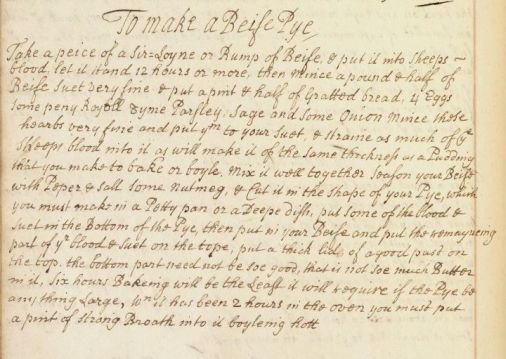 To make a Beife Pye
Take a peice of a Sir=Loyne or Rump of Beife, & put it into Sheeps
blood, let it stand 12 hours or more, then Mince a pound & half of
Beife Suet very fine & put a pint & half of Gratted bread, 4 Eggs
some peny Royall Tyme Parsley, Sage and some Onion Mince these
hearbs very fine and put ym to your Suet, & Straine as much of ye
Sheeps blood into it as will make it of the same thickness as a Pudding
that you make to bake or boyle, Mix it well together season your Beife
with Peper & salt some Nutmeg, & Cut it in the shape of your Pye, which
you must make in a Petty pan or a Deepe dish, put some of the blood &
suet in the Bottom of the Pye, then put in your Beife and put the remayneing
part of ye blood & Suet on the tope, put a thick lid of a good past on
the top. the bottom part need not be soe good, that is not soe much Butter
in it, Six hours Bakeing will be the Least it will require if the Pye be
any thing Large, wn it has been 2 hours in the oven you must put
a pint of strong Broath into it boyleing hott